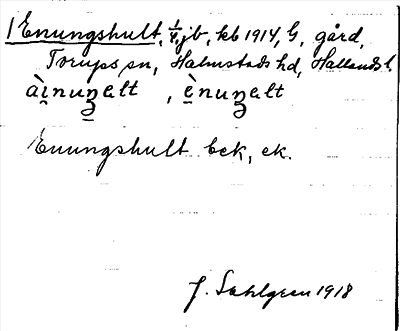 1 Enungshult, 1/4 jb, kb 1914, G, gård,
Torups sn, Halmstads hd, Hallands l.
àinuŋelt, ènuŋelt
Enungshult bek, ek.
J. Sahlgren 1918